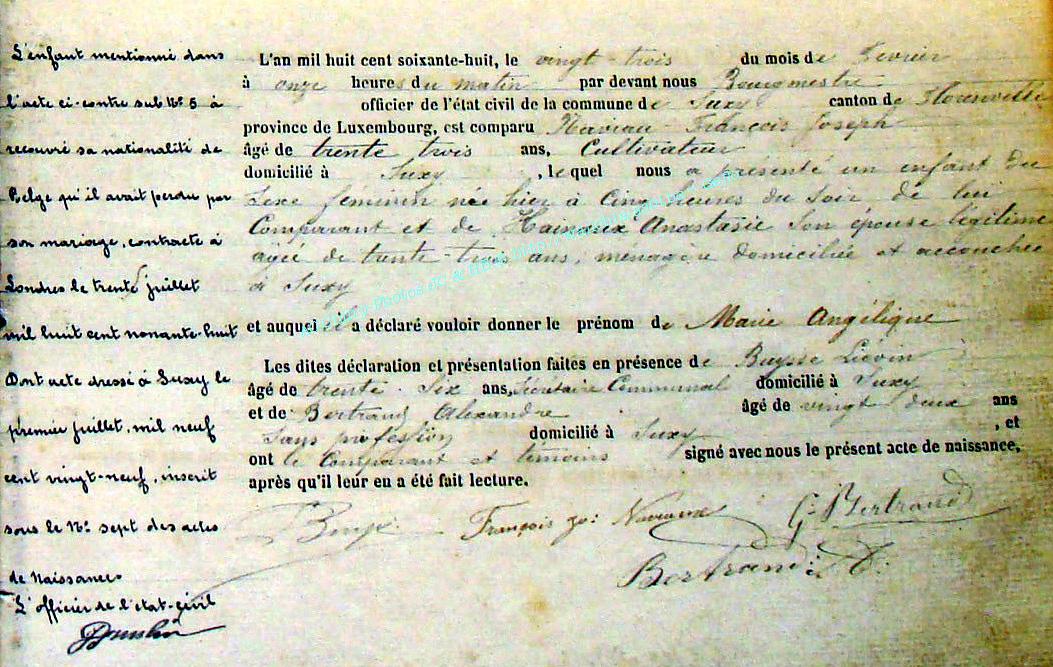 L'enfant mentionné dans
l'acte ci-contre sub N° 5 à
recouvré sa nationalité de
Belge qu'il avait perdu par
son mariage, contracté à
Londres le trente juillet
mil huit cent nonante-huit
Dont acte dressé à Suxy le
premier juillet, mil neuf
cent vingt-neuf, inscrit
sous le N° sept des actes
de Naissances
L'officier de l'état-civil
L'an mil huit cent soixante-huit, le vingt-trois du mois de fevrier
à onze heures du matin par devant nous Bourgmestre
officier de l'état civil de la commune de Suxy canton de Florenville
province de Luxembourg, est comparu François Joseph
âgé de trente trois ans, Cultivateur
domicilié à Suxy, lequel nous a présenté un enfant du
Sexe féminin née hier à Cinq heures du Soir, de lui
Comparant et de Hainaux Anastasie Son épouse légitime
agée de trente-trois ans, ménagère domiciliée et accouchée
à Suxy
et auquel il a déclaré vouloir donner le prénom de Marie Angélique
Les dites déclaration et présentation faites en présence de Buysse Liévin
âgé de trente-six ans, Sécrétaire Communal domicilié à Suxy
et de Bertrand Alexandre âgé de vingt deux ans
Sans profession domicilié à Suxy, et
ont le Comparant et témoins signé avec nous le présent acte de naissance,
après qu'il leur en a été fait lecture.
François jo:
G. Bertrand
Bertrand